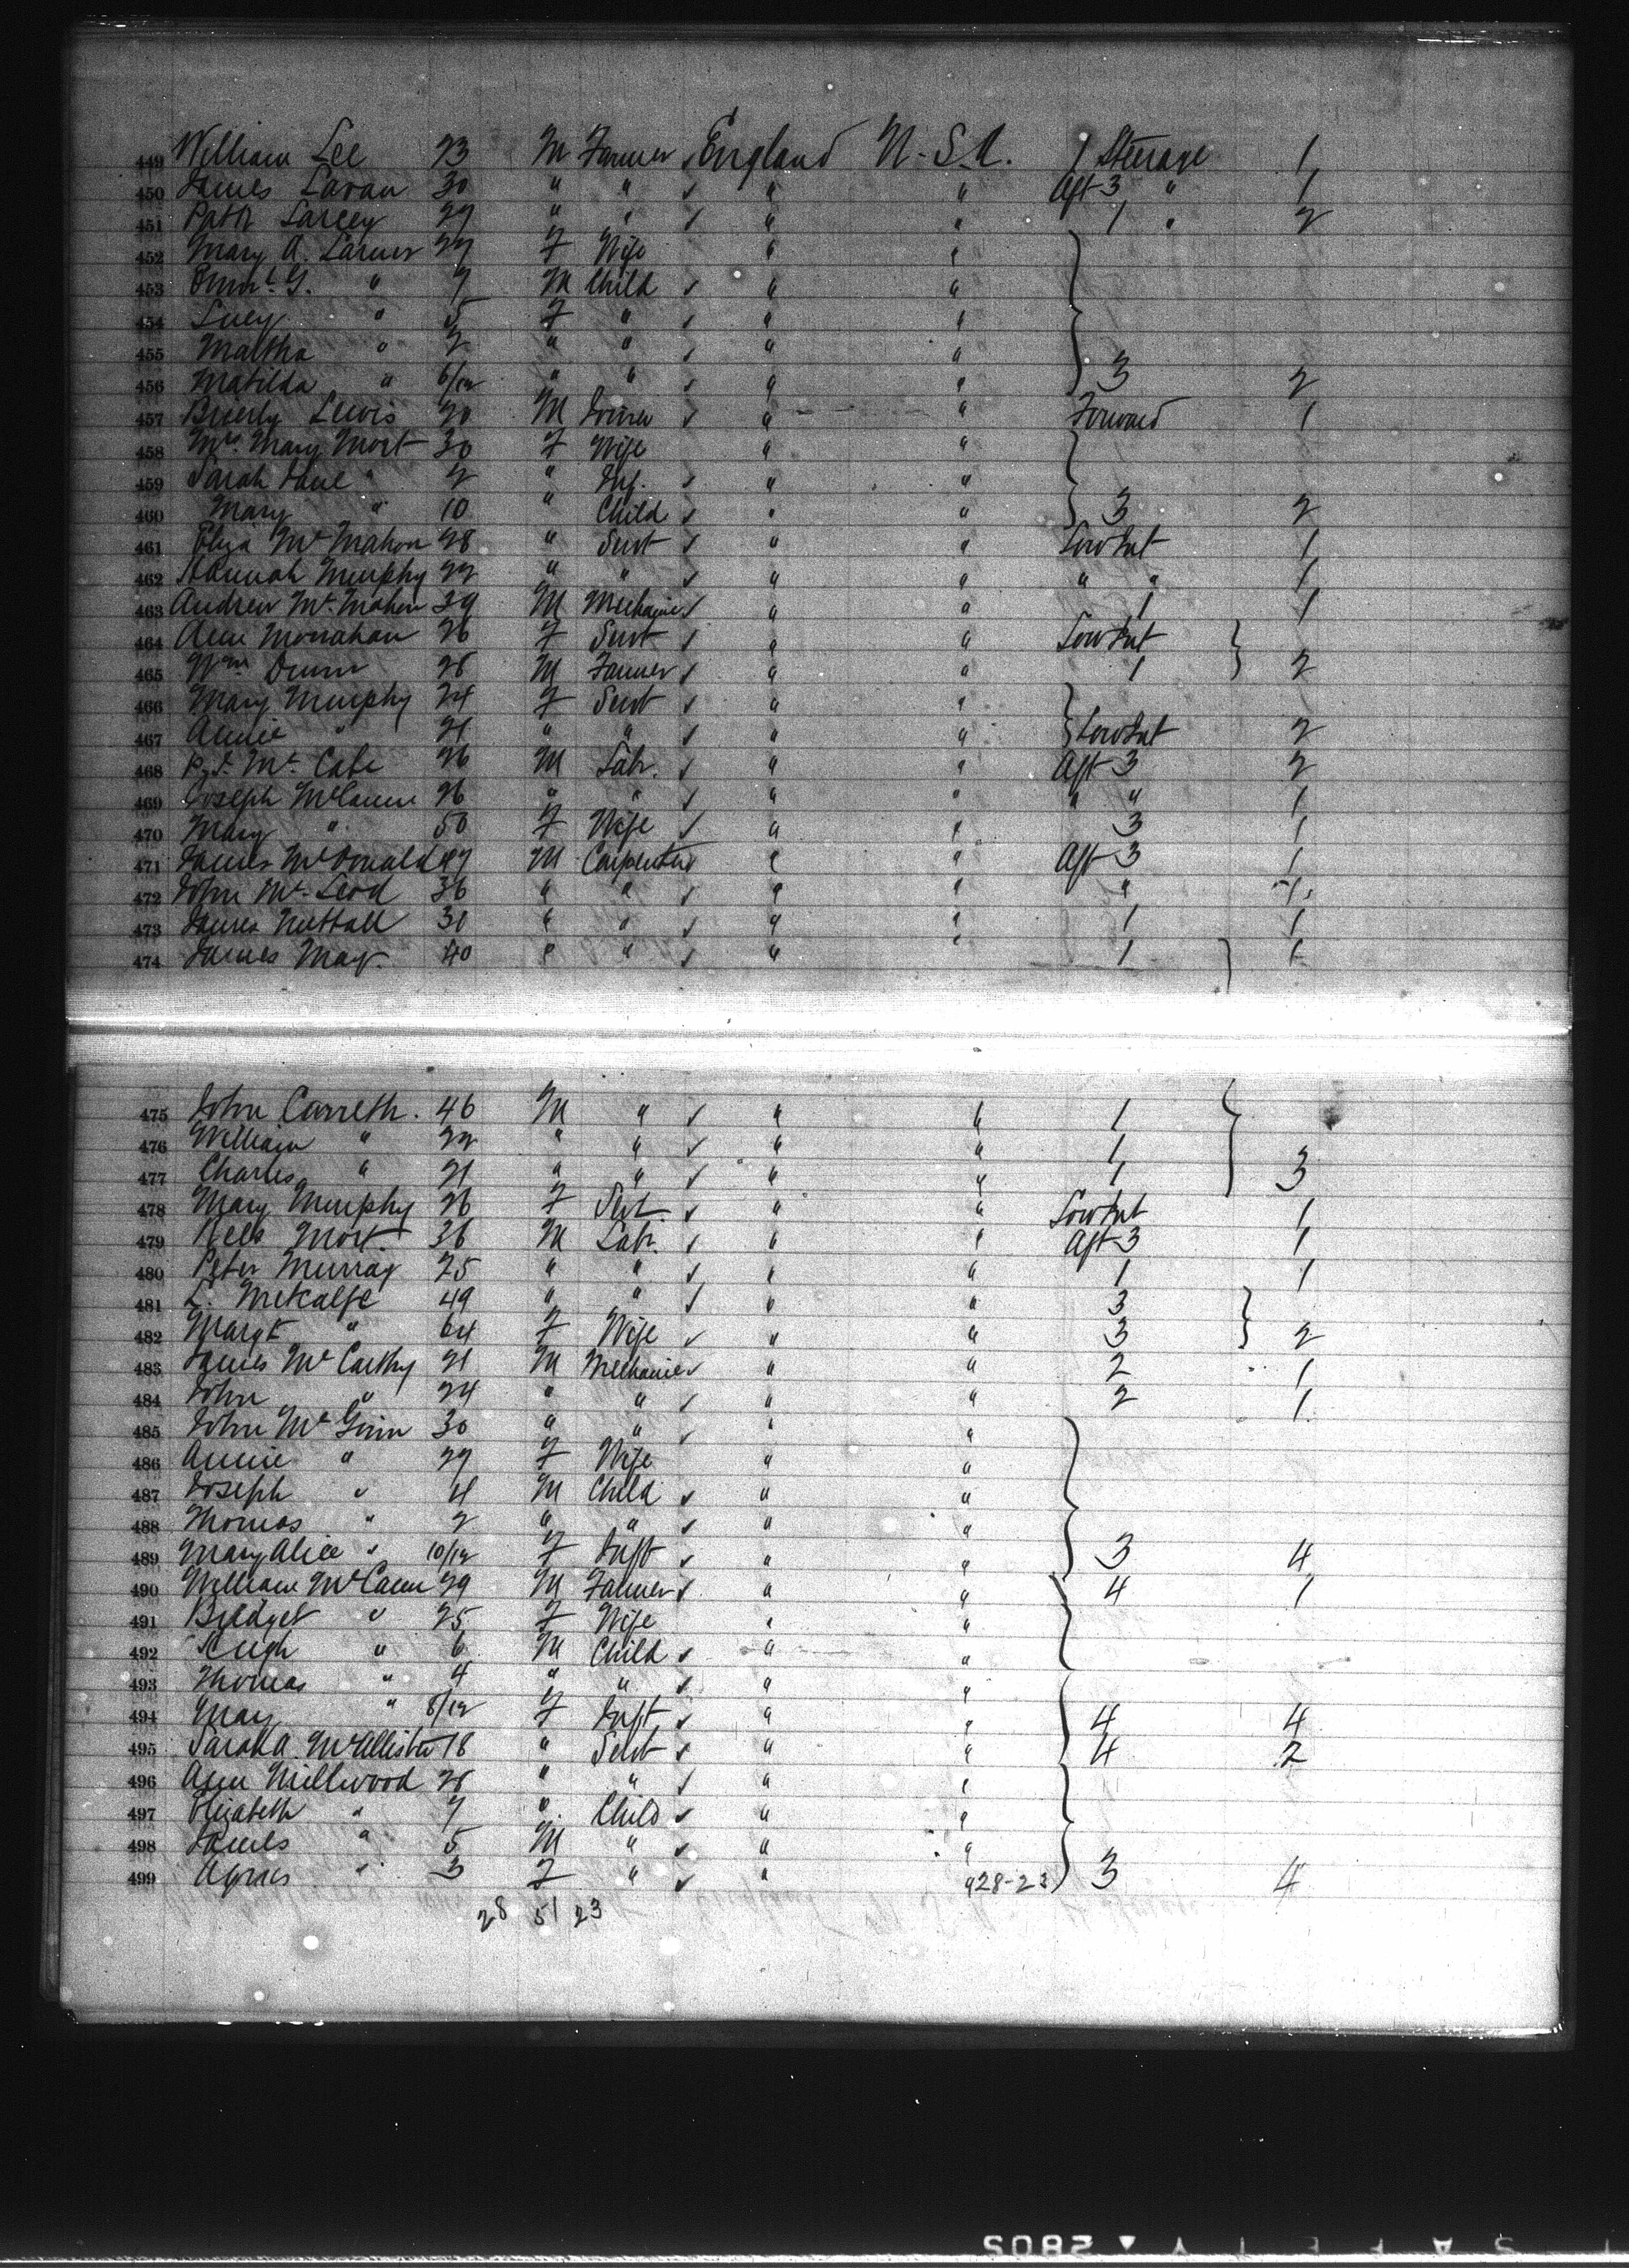 449 William Lee 23 M Farmer ✓ England U.S.A. 1 Steerage 1
450 James Lavan 30 " " ✓ " " Aft 3 " 1
451 Patk Larcey 27 " " ✓ " " 1 " 2
452 Mary A. Larner 27 F Wife " "
453 G. " 7 M Child ✓ " "
454 Lucy " 5 F " ✓ " "
455 Martha " 2 " " ✓ " "
456 Matilda " 6/12 " " ✓ " " 3 2
457 Lewis 20 M ✓ " " Forward 1
458 Mrs. Mary Mort 30 F Wife " "
459 Sarah Jane " 2 " Inf. ✓ " "
460 Mary " 10 " Child ✓ " " 3 2
461 Eliza McMahon 28 " Servt ✓ " " Low Int 1
462 Hannah Murphy 22 " " ✓ " " " " 1
463 Andrew McMahon 39 M Mechanic ✓ " " 1 1
464 Ann Monahan 26 F Servt ✓ " " Low Int
465 Wm Dunn 28 M Farmer ✓ " " 1 2
466 Mary Murphy 24 F Servt ✓ " "
467 Annie " 21 " " ✓ " " Low Int 2
468 McCabe 26 M Labr. ✓ " " Aft 3 2
469 Joseph McCann 26 " " ✓ " " " " 1
470 Mary " 50 F Wife ✓ " " 3 1
471 James McDonald 47 M Carpenter " " Aft 3 1
472 John McLeod 36 " " ✓ " " " 1
473 James Nuttall 30 " " ✓ " " 1 1
474 James May. 40 " " ✓ " " 1 1
475 John Carreth. 46 M " ✓ " " 1
476 William " 22 " " ✓ " " 1
477 Charles " 21 " " ✓ " " 1 3
478 Mary Murphy 26 F Svt. ✓ " " Low Int 1
479 Mort. 36 M Labr. ✓ " " Aft 3 1
480 Peter Murray 25 " " ✓ " " 1 1
481 L. Metcalfe 49 " " ✓ " " 3
482 " 64 F Wife ✓ " " 3 2
483 James McCarthy 21 M Mechanic ✓ " " 2 1
484 John " 24 " " ✓ " " 2 1
485 John McGinn 30 " " ✓ " "
486 Annie " 27 F Wife " "
487 Joseph " 4 M Child ✓ " "
488 Thomas " 2 " " ✓ " "
489 Mary Alice " 10/12 F Inft ✓ " " 3 4
490 William McCann 29 M Farmer ✓ " " 4 1
491 Bridget " 25 F Wife " "
492 Hugh " 6 M Child ✓ " "
493 Thomas " 4 " " ✓ " "
494 May " 8/12 F Inft ✓ " " 4 4
495 Sarah A. McAllister 18 " Servt ✓ " " 4 2
496 Ann Millwood 28 " " ✓ " "
497 Elizabeth " 7 " Child ✓ " "
498 James " 5 M " ✓ " "
499 Agnes " 3 F " ✓ " " 28-23 3 4
28 51 23
SAFETY ▲ 2805